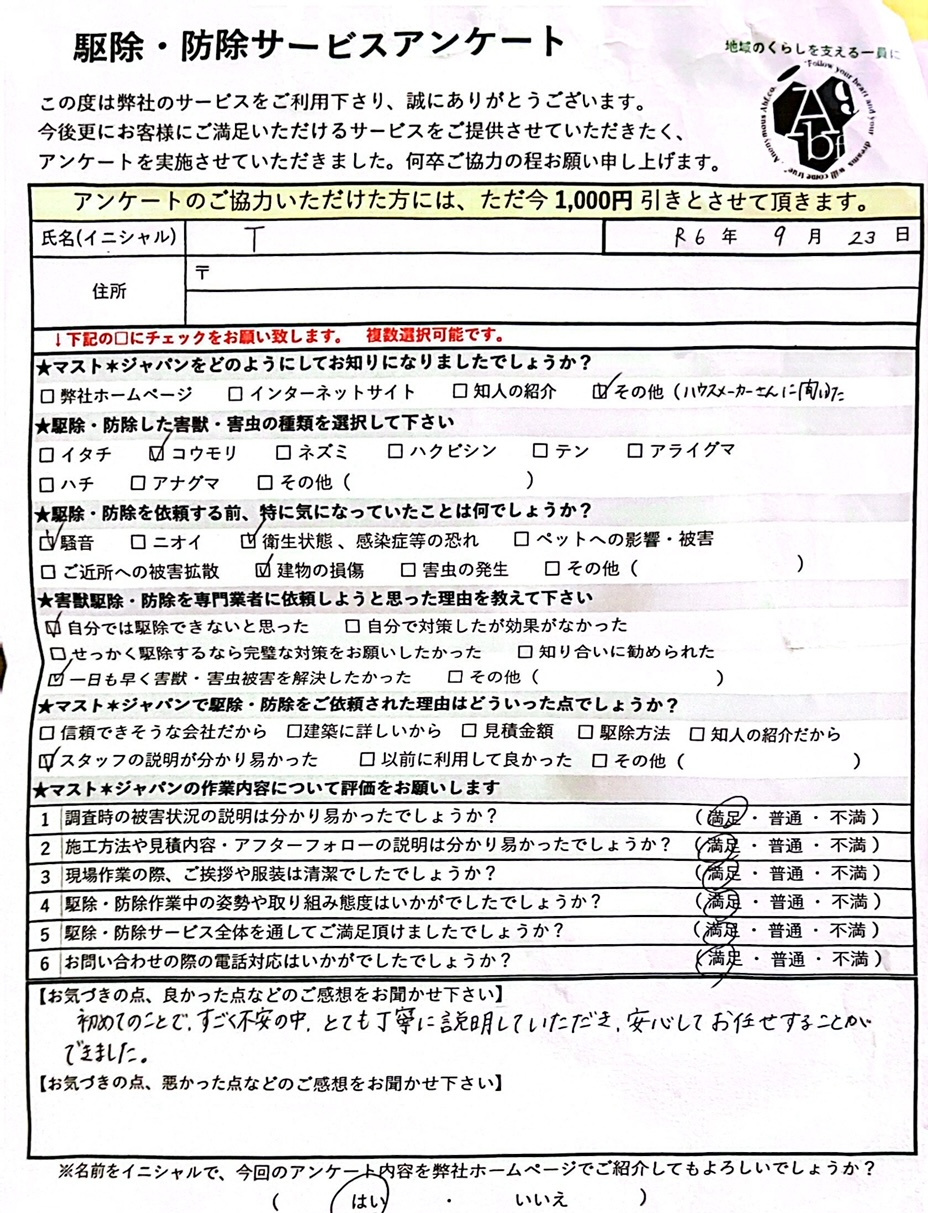 駆除・防除サービスアンケート
地域のくらしを支える一員に
"Follow your heart and your dreams will come true" Anonymous Abf.co.
A9
bf
この度は弊社のサービスをご利用下さり、誠にありがとうございます。
今後更にお客様にご満足いただけるサービスをご提供させていただきたく、
アンケートを実施させていただきました。何卒ご協力の程お願い申し上げます。
アンケートのご協力いただけた方には、ただ今 1,000円 引きとさせて頂きます。
氏名(イニシャル) T R6 年 9 月 23 日
住所 〒
↓下記の□にチェックをお願い致します。 複数選択可能です。
★マスト＊ジャパンをどのようにしてお知りになりましたでしょうか？
□ 弊社ホームページ □ インターネットサイト □ 知人の紹介 ☑ その他 (ハウスメーカーさんに聞いた
★駆除・防除した害獣・害虫の種類を選択して下さい
□ イタチ ☑ コウモリ □ ネズミ □ ハクビシン □ テン □ アライグマ
□ ハチ □ アナグマ □ その他 ( )
★駆除・防除を依頼する前、特に気になっていたことは何でしょうか？
☑ 騒音 □ ニオイ ☑ 衛生状態 、感染症等の恐れ □ ペットへの影響・被害
□ ご近所への被害拡散 ☑ 建物の損傷 □ 害虫の発生 □ その他 ( )
★害獣駆除・防除を専門業者に依頼しようと思った理由を教えて下さい
☑ 自分では駆除できないと思った □ 自分で対策したが効果がなかった
□ せっかく駆除するなら完璧な対策をお願いしたかった □ 知り合いに勧められた
☑ 一日も早く害獣・害虫被害を解決したかった □ その他 ( )
★マスト＊ジャパンで駆除・防除をご依頼された理由はどういった点でしょうか？
□ 信頼できそうな会社だから □建築に詳しいから □ 見積金額 □ 駆除方法 □ 知人の紹介だから
☑ スタッフの説明が分かり易かった □ 以前に利用して良かった □ その他 ( )
★マスト＊ジャパンの作業内容について評価をお願いします
1 調査時の被害状況の説明は分かり易かったでしょうか？ ( 満足 ・ 普通 ・ 不満 )
2 施工方法や見積内容・アフターフォローの説明は分かり易かったでしょうか？ ( 満足 ・ 普通 ・ 不満 )
3 現場作業の際、ご挨拶や服装は清潔でしたでしょうか？ ( 満足 ・ 普通 ・ 不満 )
4 駆除・防除作業中の姿勢や取り組み態度はいかがでしたでしょうか？ ( 満足 ・ 普通 ・ 不満 )
5 駆除・防除サービス全体を通してご満足頂けましたでしょうか？ ( 満足 ・ 普通 ・ 不満 )
6 お問い合わせの際の電話対応はいかがでしたでしょうか？ ( 満足 ・ 普通 ・ 不満 )
【お気づきの点、良かった点などのご感想をお聞かせ下さい】
初めてのことで、すごく不安の中、とても丁寧に説明していただき、安心してお任せすることが
できました。
【お気づきの点、悪かった点などのご感想をお聞かせ下さい】
※名前をイニシャルで、今回のアンケート内容を弊社ホームページでご紹介してもよろしいでしょうか？
( はい ・ いいえ )